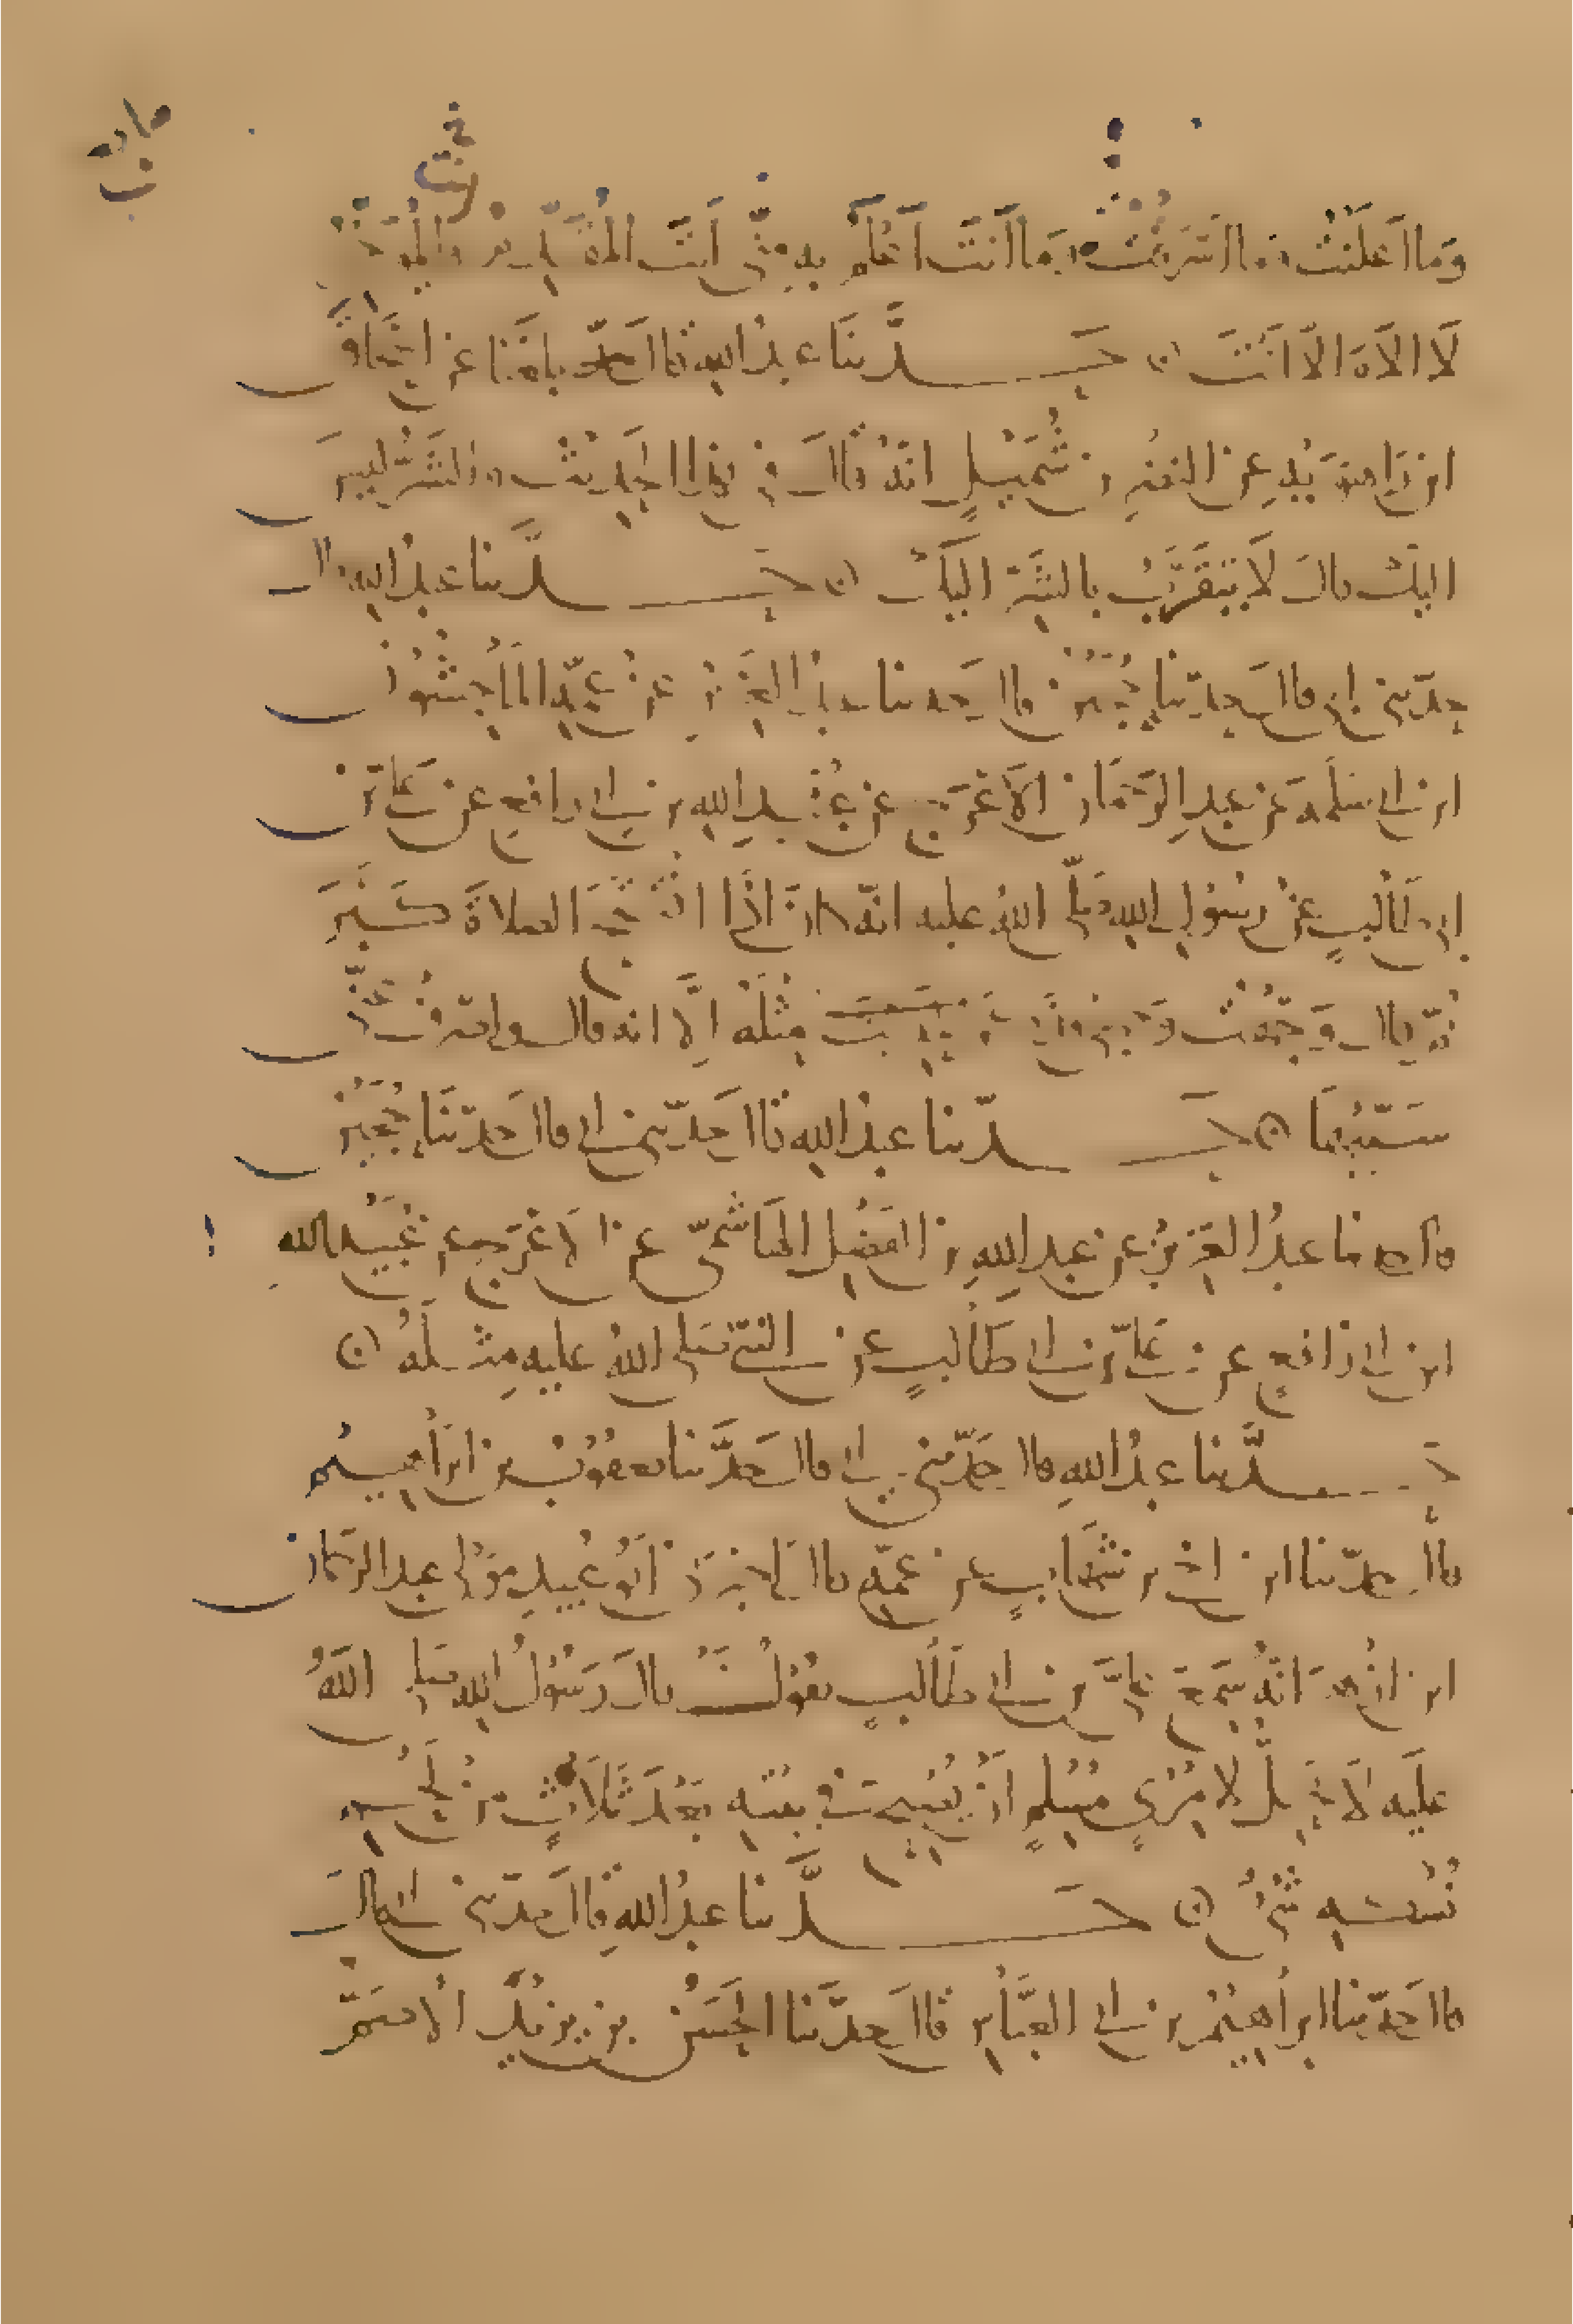 وَمَا اَعلَنْتُ وَمَا اسْرَفْتُ وَمَا اَنتَ اَعْلَمُ بِهِ مِنِّي اَنتَ المُقَدِّمُ وَالمُؤَخِّرُ
لَا الَاهَ الَّا اَنْتَ حَدَّثَنَا عبدُ اللهِ قَالَ بَلَغَنَا عن اسْحَاقَ
ابن رَاهوَيْهِ عن النضرِ بن شُمَيْلٍ انهُ قَالَ في هَذا الحَدِيثِ والشَّرُّ ليسَ
اليكَ قالَ لَا يُتَقَرَّبُ بالشَّرِّ اليكَ حَدَّثَنا عبدُ اللهِ قال
حدّثني ابي قال حدّثنا حُجَيْنٌ قال حدثنا عبدُ العَزيزِ عن عمِّهِ المَاجِشُونِ
ابن ابي سَلمَةَ عن عبدِ الرَّحمَانِ الاَعْرَجِ عن عُبَيْدِ اللهِ بن ابي رافعٍ عن عَليِّ بن
ابي طَالبٍ عن رسُولِ اللهِ صَلَّى اللهُ عليه انّه كانَ اذَا افْتَتَحَ الصلاةَ كَبَّرَ
ثمّ قال وَجَّهْتُ وَجهي مِثْلَهُ اِلَّا انه قال واصْرِفْ عَنِّي
سَيِّئَهَا حَدَّثنا عبدُ اللهِ قال حدّثني ابي قال حدّثَنَا حُجَيْنٌ
قال حدثنا عبدُ العَزيزِ عن عبدِ اللهِ بن الفَضْلِ الهَاشميِّ عن الاَعْرَجِ عن عُبَيْدِ الله
ابن ابي رَافعٍ عن عَليِّ بن ابي طَالبٍ عن النبيّ صَلى اللهُ عليهِ مِثْلَهُ
حَدَّثنا عبدُ اللهِ قال حَدّثني ابي قال حَدَّثنا يعقُوبُ بن ابرَاهيمَ
قال حدّثنا ابن اخي بن شِهَابٍ عن عمِّهِ قال اخبرني ابُو عُبيدٍ مَوْلى عبد الرحمان
ابن ازْهَرَ انّهُ سَمِعَ عليَّ بن ابي طَالبٍ يقُولُ قالَ رَسُولُ اللهِ صَلى اللهُ
عليَه لَا يَحِلُّ لامْرِئٍ مُسْلِمٍ اَنْ يُصْبِحَ في بيْتِهِ بَعْدَ ثَلَاثٍ من لَحْمِ
نُسُكِهِ شَيْءٌ حَدَّثنا عبدُ اللهِ قال حدّثني ابي قالَ
قال حَدّثنا ابراهيمُ بن ابي العَبَّاسِ قال حدَّثَنا الحَسَنُ بن يزيدَ الاصَمُّ